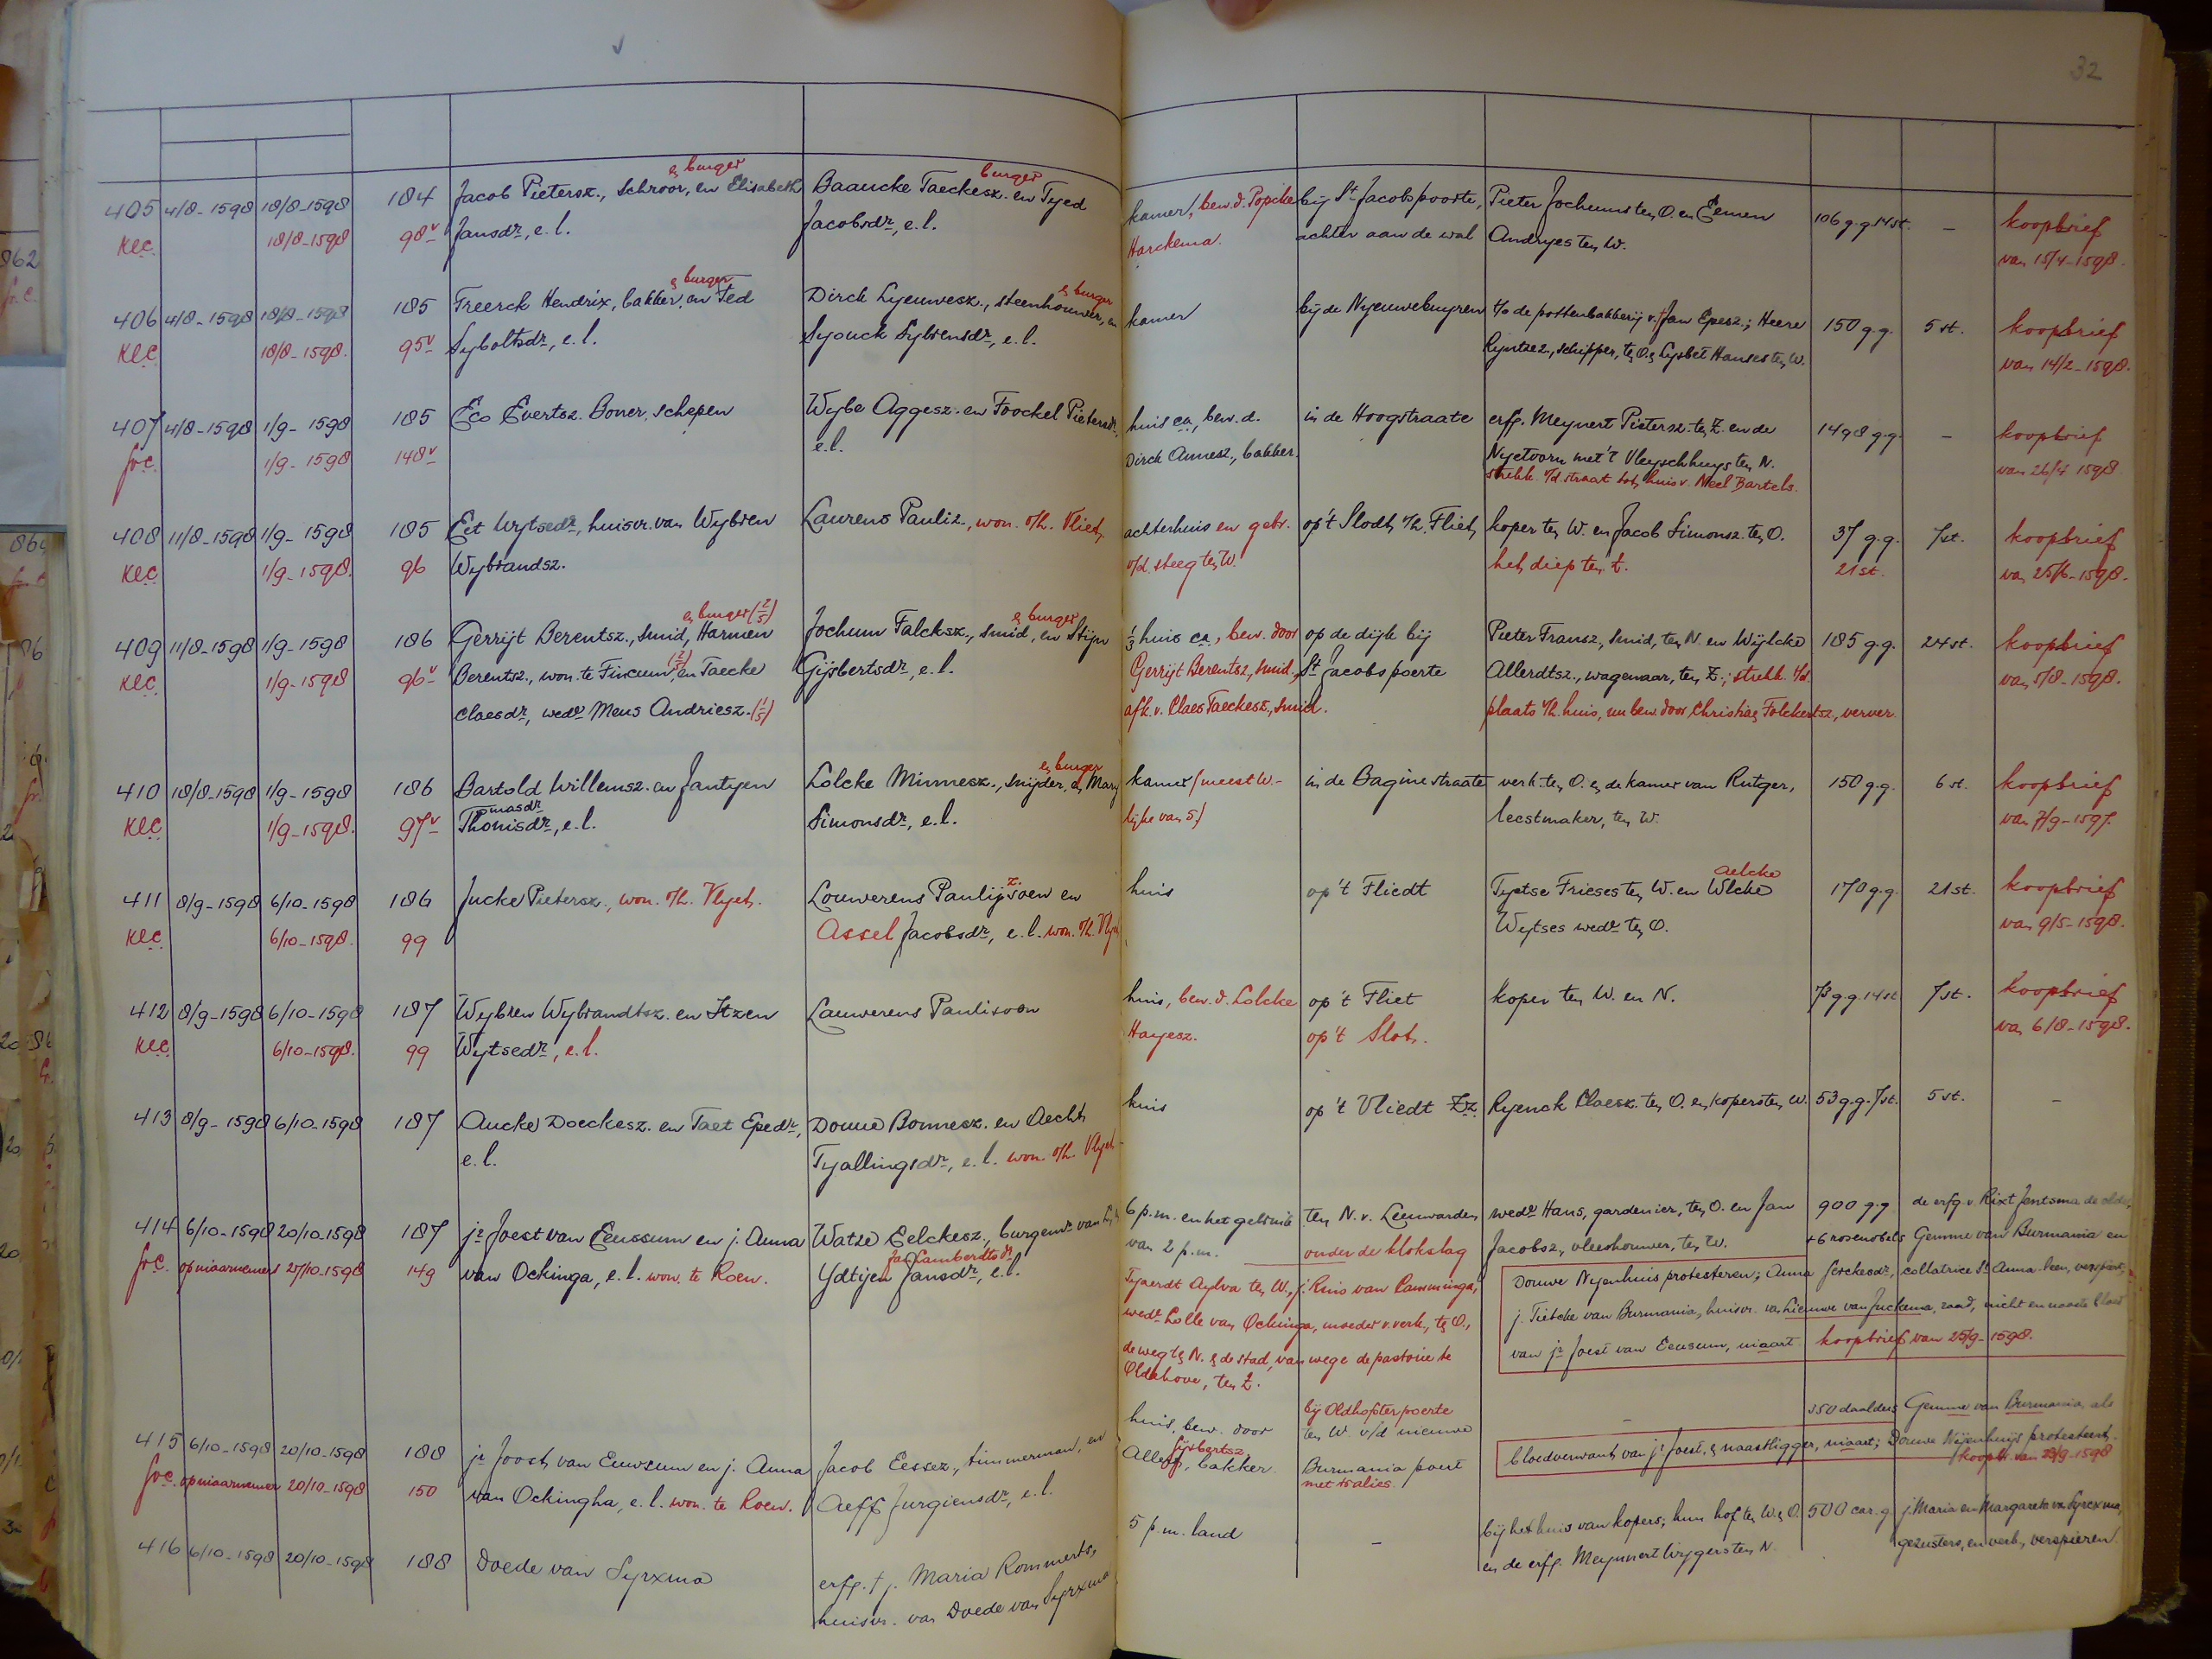 32
& burger burger
405 4/8-1598 18/8-1598 184 Jacob Pietersz., Schroor, en Elisabeth Baaucke Taeckesz. en Tyed kamer, bew. d. Popcke bij St Jacobspoorte, Pieter Jochums ten O. en Eemen 106 g.g. 14 st. - koopbrief
KlC. 18/8-1598 98v Jansdr, e.l. Jacobsdr, e.l. Harckema. achter aan de wal Andryes ten W. van 15/4-1598.
& burger & burger
406 4/8-1598 18/8-1598 185 Freerck Hendrix, bakker, en Fed Dirck Lyeuwesz., steenhouwer, en kamer bij de Nyeuweburen t/o de pottenbakkerij v. Jan Epesz.; Heere 150 g.g. 5 st. koopbrief
KlC. 18/8-1598. 95v Syboltsdr, e.l. Syouck Sybrensdr, e.l. Ryntsez., schipper, ten O. & Lysbet Hanses ten W. van 14/2-1598.
407 4/8-1598 1/9-1598 185 Eco Evertsz. Boner, schepen Wybe Aggesz. en Foockel Pietersdr, huis ca., bew. d. in de Hoogstraate erfg. Meynert Pietersz. ten Z. en de 1498 g.g. - koopbrief
Gr.C. 1/9-1598 148v e.l. Dirck Annesz., bakker. Nyetoorn met 't Vleyschhuys ten N. van 26/4 1598
strekk. v/d. straat tot huis v. Neel Bartels.
408 11/8-1598 1/9-1598 185 Eet Wytsedr, huisvr. van Wybren Laurens Pauliz., won. o/h. Vliet, achterhuis en gebr. op 't Slodt, o/h. Fliet, koper ten W. en Jacob Simonsz. ten O. 37 g.g. 7 st. koopbrief
KlC. 1/9-1598. 96 Wybrandsz. v/d. steeg ten W. het diep ten Z. 21 st. van 25/6-1598.
& burger (2/5) & burger
409 11/8-1598 1/9-1598 186 Gerrijt Berentsz., smid, Harmen Jochum Falcksz., smid, en Stijn 1/3 huis ca., bew. door op de dijk bij Pieter Fransz., smid, ten N. en Wijlcke 185 g.g. 24 st. koopbrief
KlC. 1/9-1598 96v Berentsz., won. te Finkum, (2/5) en Taecke Gijsbertsdr, e.l. Gerrijt Berentsz., smid, St Jacobspoorte Allerdtsz., wagenaar, ten Z.; strekk. t/d. van 5/8-1598.
Claesdr, wedr Meus Andriesz. (1/5) afk. v. Claes Taeckesz., smid. plaats v/h. huis, nu bew. door Christiaen Folckertsz., verver.
& burger
410 18/8-1598 1/9-1598 186 Bartold Willemsz. en Jantyen Lolcke Minnesz., snijder, & Mary kamer (meest W.- in de Bagine straate verk. ten O. & de kamer van Rutger, 150 g.g. 6 st. koopbrief
masdr
KlC. 1/9-1598. 97v Thonisdr, e.l. Simonsdr, e.l. lijke van 5.) leestmaker, ten W. van 7/9-1597.
z. aelcke
411 8/9-1598 6/10-1598 186 Jucke Pietersz., won. o/h. Vlyet. Louwerens Paulijsoen en huis op 't Fliedt Tyetse Frieses ten W. en Wlcke 170 g.g. 21 st. koopbrief
KlC. 6/10-1598. 99 Assel Jacobsdr, e.l. won. o/h. Vlyet Wytses wedr ten O. van 9/5-1598.
412 8/9-1598 6/10-1598 187 Wybren Wybrandtsz. en Itzen Lauwerens Paulisoon huis, bew. d. Lolcke op 't Fliet koper ten W. en N. 73 g.g. 14 st 7 st. koopbrief
KlC. 6/10-1598. 99 Wytsedr, e.l. Hayesz. op 't Slot. van 6/8-1598.
413 8/9-1598 6/10-1598 187 Aucke Doeckesz. en Taet Epedr, Douwe Bonnesz. en Aecht huis op 't Vliedt Zz. Ryenck Claesz. ten O. en kopers ten W. 53 g.g. 7 st. 5 st. -
e.l. Tyallingsdr, e.l. won. o/h. Vlyet
414 6/10-1598 20/10-1598 187 jr Joest van Eeussum en j. Anna Watze Eelckesz., burgemr van 6 p.m. en het gebruik ten N. v. Leeuwarden, wedr Hans, gardenier, ten O. en Jan 900 g.g. de erfg. v. Rixt Jentsma de olde,
Jan Lambertsdr
Gr.C. op niaarnemers 27/10-1598 149 van Ockinga, e.l. won. te Roen. Ydtijen Jansdr, e.l. van 2 p.m. onder de klokslag Jacobsz., vleeshouwer, ten W. +6 rosenobels Gemme van Burmania en
Tjaerdt Aylva ten W., j. Kuis van Camminga, Douwe Nyenhuis protesteren; Anna Serckesdr, collatrice St Anna-leen, verspiert;
wedr Lolle van Ockinga, moeder v. verk., ten O., j. Tietcke van Burmania, huisvr. van Lieuwe van Juckema, raad, nicht en naaste bloed
de weg ten N. & de stad, van wege de pastorie te van jr Joest van Eeusum, niaart koopbrief van 25/9-1598.
Oldehove, ten Z.
415 6/10-1598 20/10-1598 188 jr Joost van Eeuwsum en j. Anna Jacob Eessez., timmerman, en huis, bew. door bij Oldhofster poerte - 350 daalders Gemme van Burmania, als
ten W. v/d nieuwe
Gijsbertsz.
Gr.C. op niaarnemer 20/10-1598 150 van Ockingha, e.l. won. te Roen. Aeff Jurgiensdr, e.l. Alleff, bakker. Burmania poert bloedverwant van jr Joest, & naastligger, niaart; Douwe Nijenhuijs protesteert.
met tralies. koopbr. van 29/9-1598
416 6/10-1598 20/10-1598 188 Doede van Syrxma erfg. † j. Maria Rommerts, 5 p.m. land - bij het huis van kopers; hun hof ten W. & O. 500 car. g. j. Maria en Margareta van Syrcxma,
huisvr. van Doede van Syrxma en de erfg. Meynnert Wygers ten N. gezusters, en verk., verspieren.